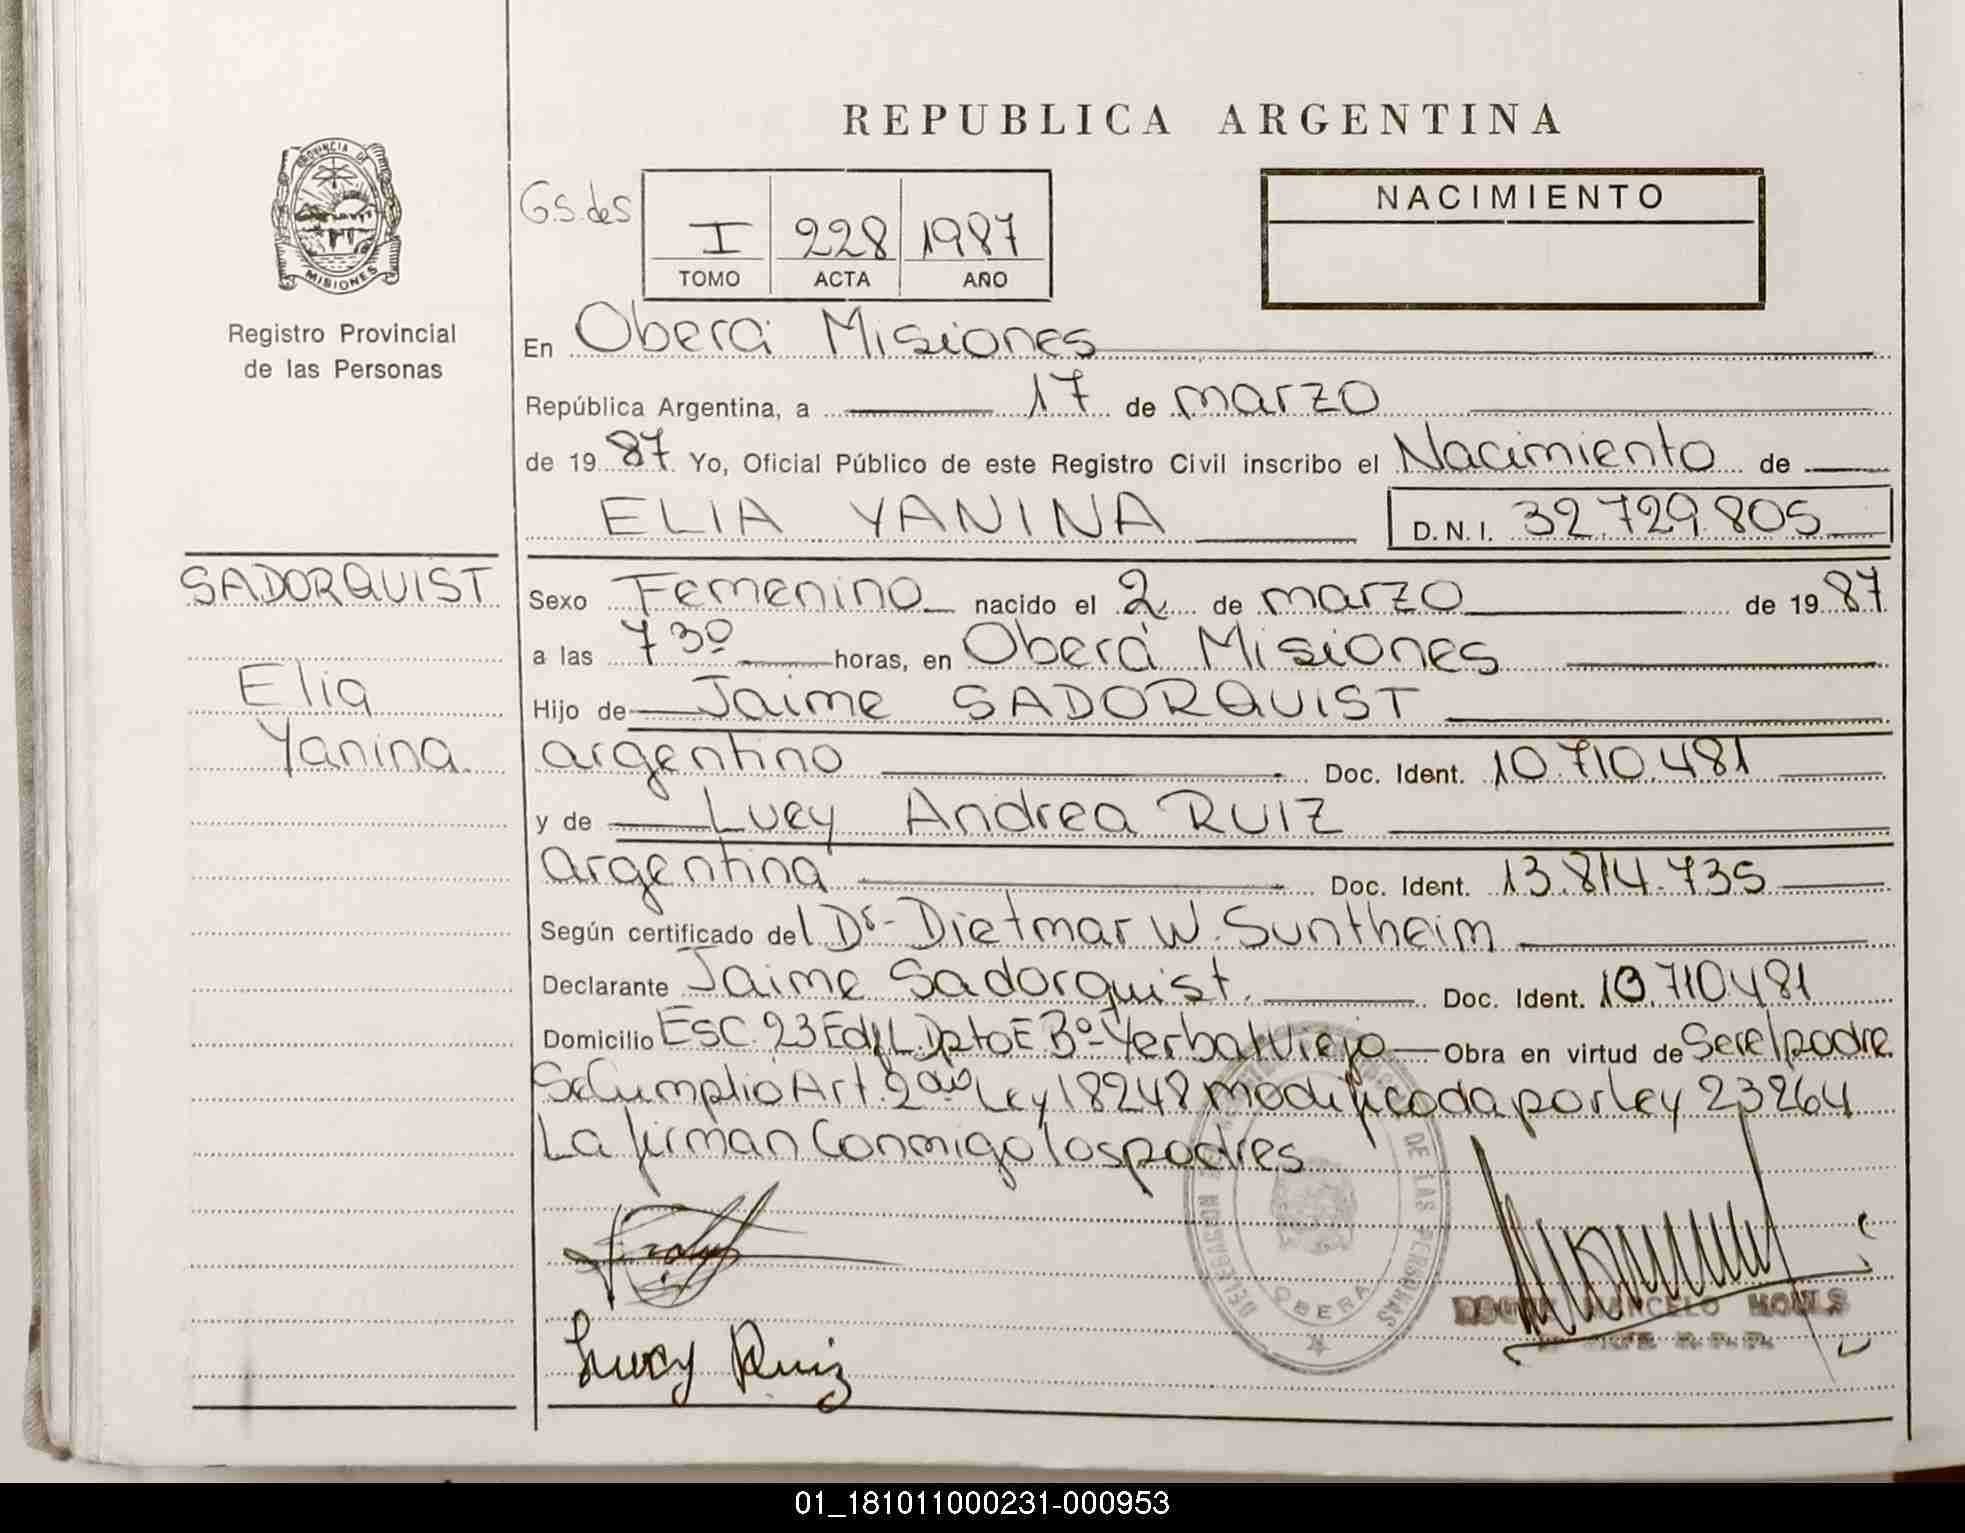 REPUBLICA ARGENTINA
PROVINCIA DE
MISIONES
Registro Provincial
de las Personas
G.S. des
I 228 1987
TOMO ACTA AÑO
NACIMIENTO
En Oberá Misiones
República Argentina, a 17 de marzo
de 1987 Yo, Oficial Público de este Registro Civil inscribo el Nacimiento de
ELIA YANINA D.N.I. 32.729.805
SADORQUIST
Elia
Yanina
Sexo Femenino nacido el 2 de marzo de 1987
a las 7 30 horas, en Oberá Misiones
Hijo de Jaime SADORQUIST
argentino Doc. Ident. 10.710.481
y de Lucy Andrea RUIZ
argentina Doc. Ident. 13.814.735
Según certificado del Dr. Dietmar W. Suntheim
Declarante Jaime Sadorquist. Doc. Ident. 10.710.481
Domicilio Esc. 23 Edif L. Dpto E Bº Yerbal Viejo Obra en virtud de Ser el padre
Se Cumplió Art. 2do Ley 18248 modificada por Ley 23264
La firman Conmigo los padres
DELEGACION DE LAS PERSONAS
OBERA
MARCELO
Lucy Ruiz
01_181011000231-000953